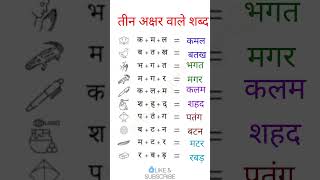 तीन अक्षर वाले शब्द
क + म + ल = कमल
ब + त + ख = बतख
भ + ग + त = भगत
म + ग + र = मगर
क + ल + म = कलम
श + ह + द = शहद
प + तं + ग = पतंग
ब + ट + न = बटन
म + ट + र = मटर
र + ब + ड़ = रबड़
LIKE &
SUBSCRIBE
भगत
मगर
कलम
शहद